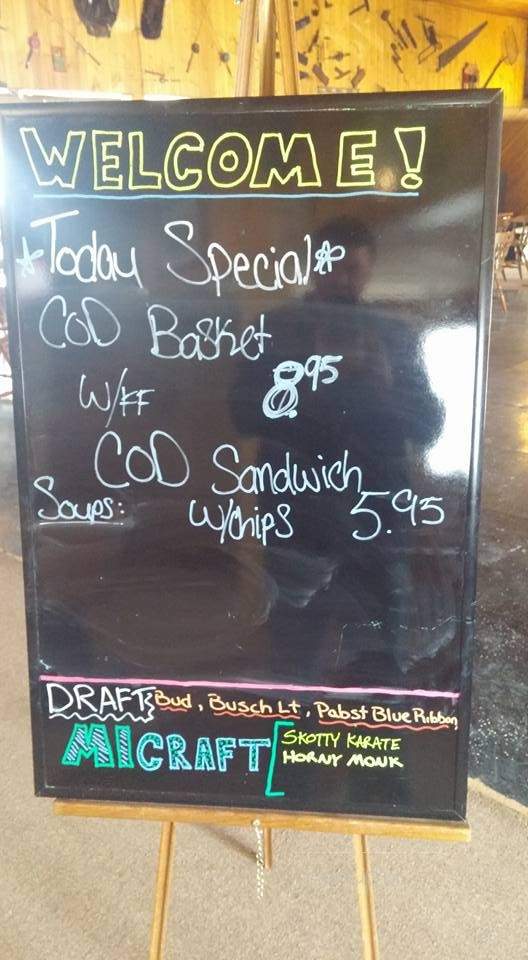 WELCOME!
*Today Special*
COD Basket
W/FF 8.95
COD Sandwich
Soups: W/Chips 5.95
DRAFTS Bud, Busch Lt, Pabst Blue Ribbon
MI CRAFT [ SKOTTY KARATE
HORNY MONK